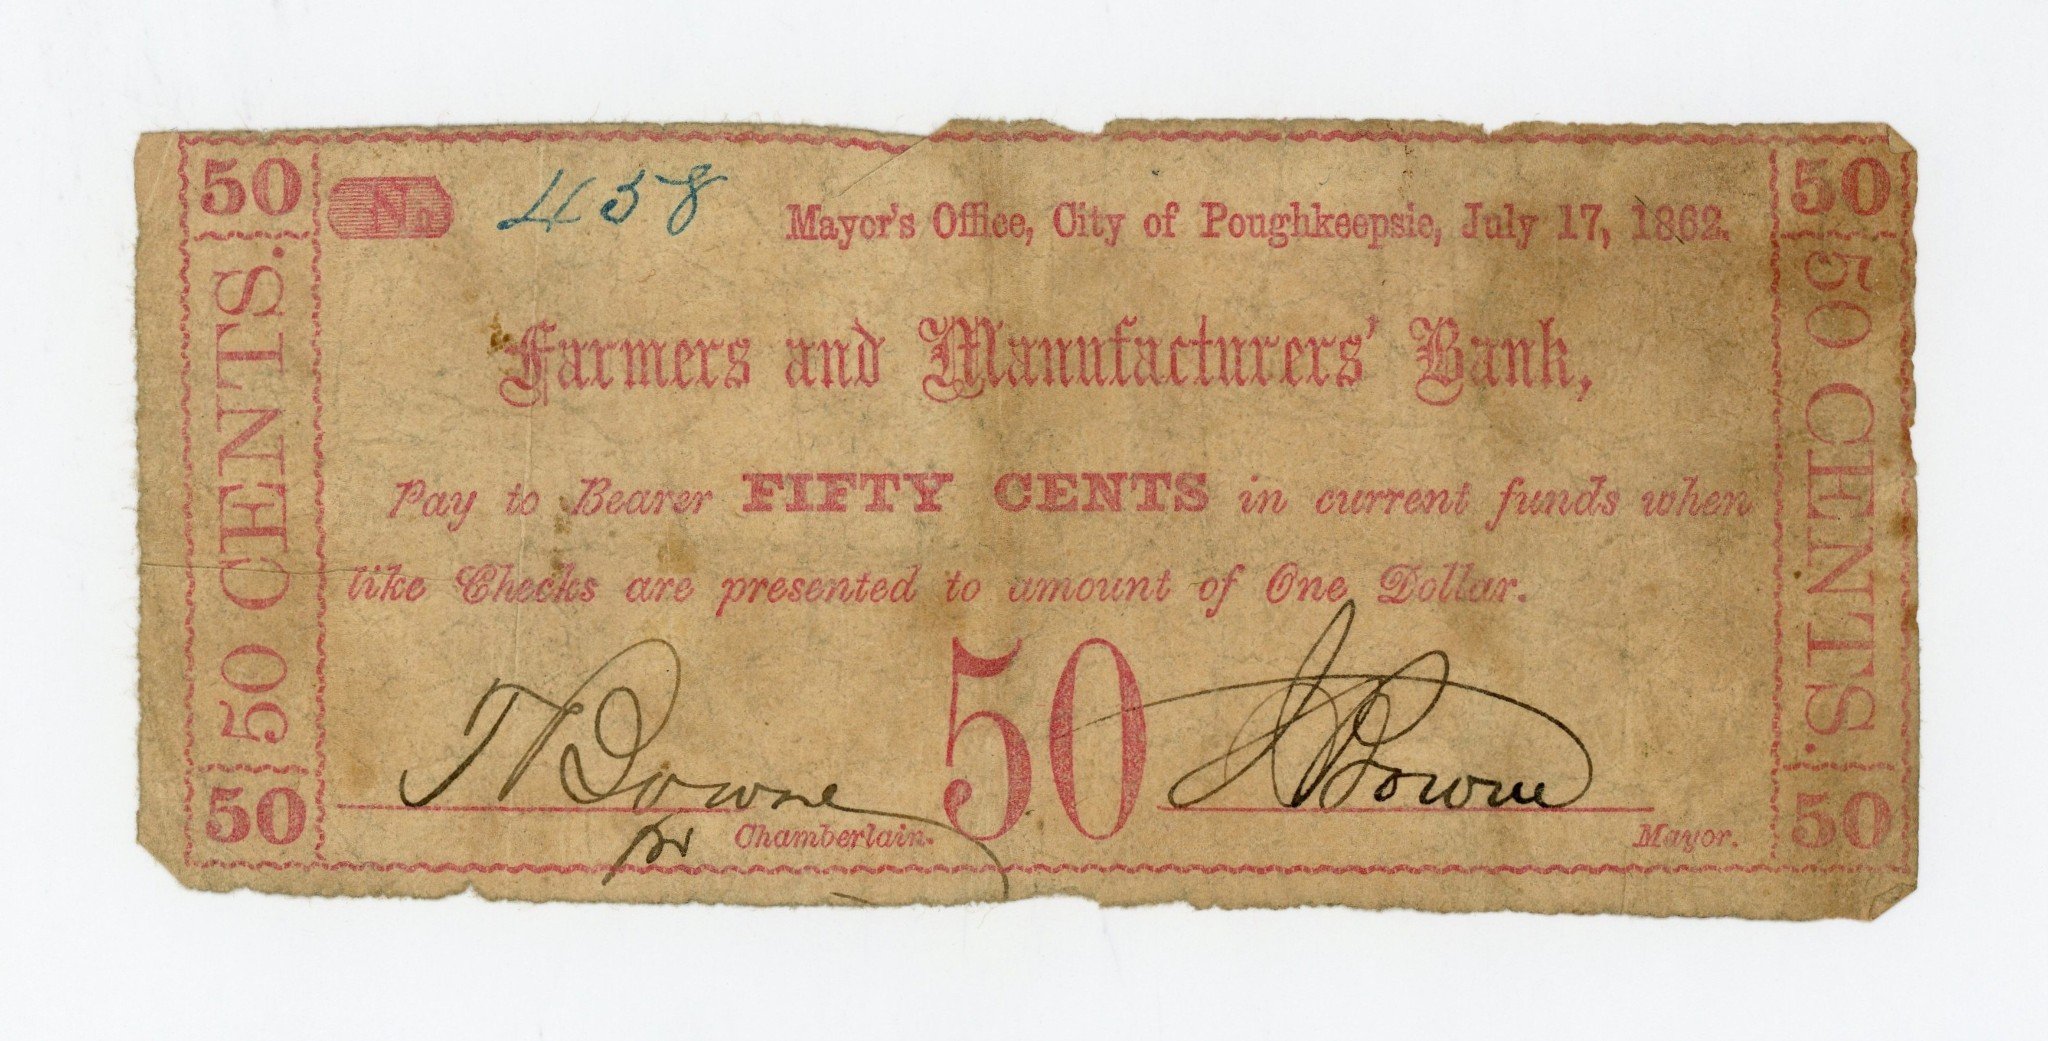 50
No. 458
Mayor's Office, City of Poughkeepsie, July 17, 1862.
50
50 CENTS.
Farmers and Manufacturers' Bank,
50 CENTS.
Pay to Bearer FIFTY CENTS in current funds when
like Checks are presented to amount of One Dollar.
50
Bowne
Bowne
Chamberlain.
Mayor.
50
50